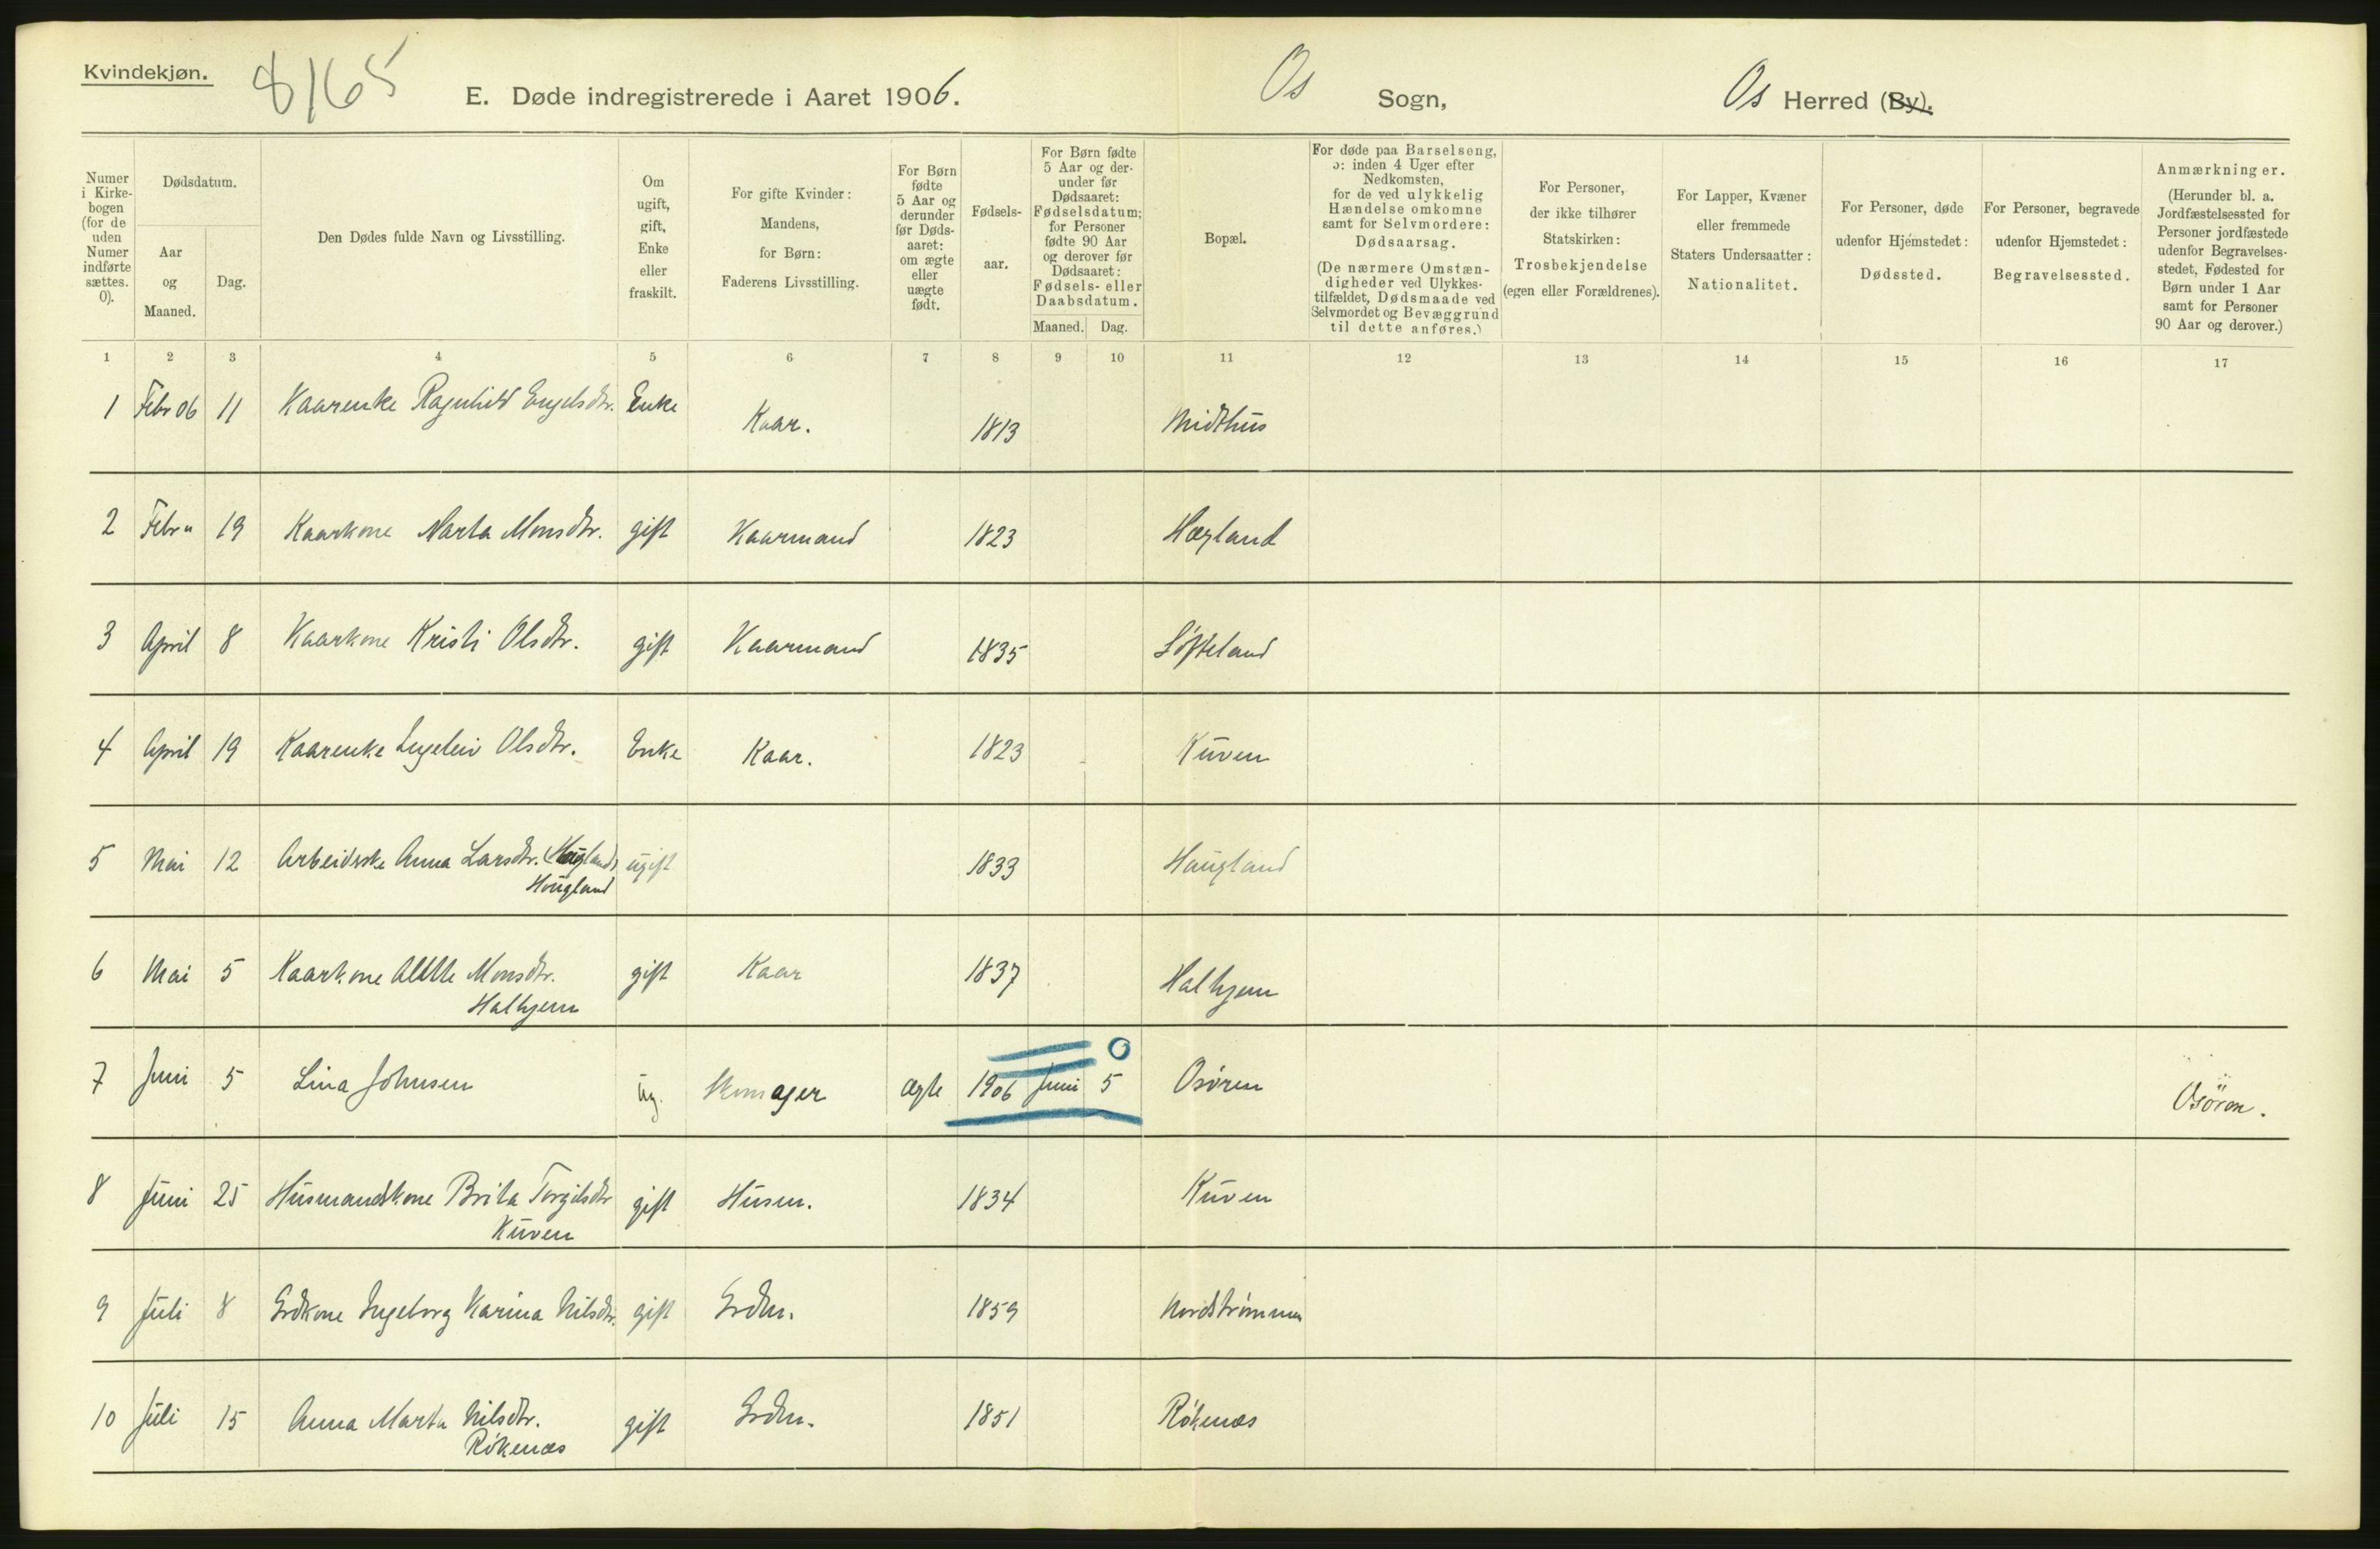 Kvindekjøn.
8165
E. Døde indregistrerede i Aaret 1906.
Os Sogn,
Os Herred (By).
Numer i Kirkebogen (for de uden Numer indførte sættes. 0).
Dødsdatum.
Aar og Maaned.
Dag.
Den Dødes fulde Navn og Livsstilling.
Om ugift, gift, Enke eller fraskilt.
For gifte Kvinder: Mandens, for Børn: Faderens Livsstilling.
For Børn fødte 5 Aar og derunder før Dødsaaret: om ægte eller uægte født.
Fødselsaar.
For Børn fødte 5 Aar og derunder før Dødsaaret: Fødselsdatum; for Personer fødte 90 Aar og derover før Dødsaaret: Fødsels- eller Daabsdatum.
Maaned. Dag.
Bopæl.
For døde paa Barselseng, ɔ: inden 4 Uger efter Nedkomsten, for de ved ulykkelig Hændelse omkomne samt for Selvmordere: Dødsaarsag.
(De nærmere Omstændigheder ved Ulykkestilfældet, Dødsmaade ved Selvmordet og Bevæggrund til dette anføres.)
For Personer, der ikke tilhører Statskirken: Trosbekjendelse (egen eller Forældrenes).
For Lapper, Kvæner eller fremmede Staters Undersaatter: Nationalitet.
For Personer, døde udenfor Hjemstedet: Dødssted.
For Personer, begravede udenfor Hjemstedet: Begravelsessted.
Anmærkninger.
(Herunder bl. a. Jordfæstelsessted for Personer jordfæstede udenfor Begravelsesstedet, Fødested for Børn under 1 Aar samt for Personer 90 Aar og derover.)
1 2 3 4 5 6 7 8 9 10 11 12 13 14 15 16 17
1 Febr 06 11 Kaarenke Ragnhild Engelsdtr. Enke Kaar. 1813 Midthus
2 Febr " 19 Kaarkone Marta Monsdtr. gift Kaarmand 1823 Hægland
3 April 8 Kaarkone Kristi Olsdtr. gift Kaarmand 1835 Søfteland
4 April 19 Kaarenke Ingeleiv Olsdtr. Enke Kaar. 1823 Kuven
5 Mai 12 Arbeidske Anna Larsdtr. ugift 1833 Haugland
Hougland
6 Mai 5 Kaarkone Monsdtr. gift Kaar 1837 Halhjem
Halhjem
7 Juni 5 Lina Johnsen ug. Skomager ægte 1906 Juni 5 Osøren Osøren.
0
8 Juni 25 Husmandskone Brita Torgilsdtr gift Husm. 1834 Kuven
Kuven
9 Juli 8 Grdkone Ingeborg Karina Nilsdtr. gift Grdm. 1859 Nordstrømmen
10 Juli 15 Anna Marta Nilsdtr. gift Grdm. 1851 Røkenæs
Røkenæs